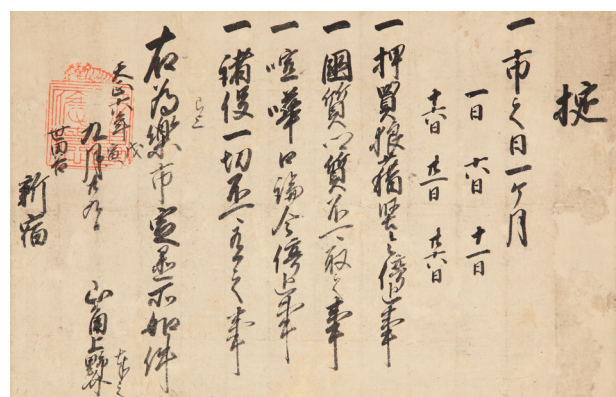 掟
一市之日一ヶ月
一日 六日 十一日
十六日 廿一日 廿六日
一押買狼藉堅令停止事
一國質郷質不可取之事
一喧嘩口論令停止事
一諸役一切不可有之事
已上
右為樂市定置所如件
天正六年戊寅
九月廿九日 山角上野介 奉之
世田谷
新宿